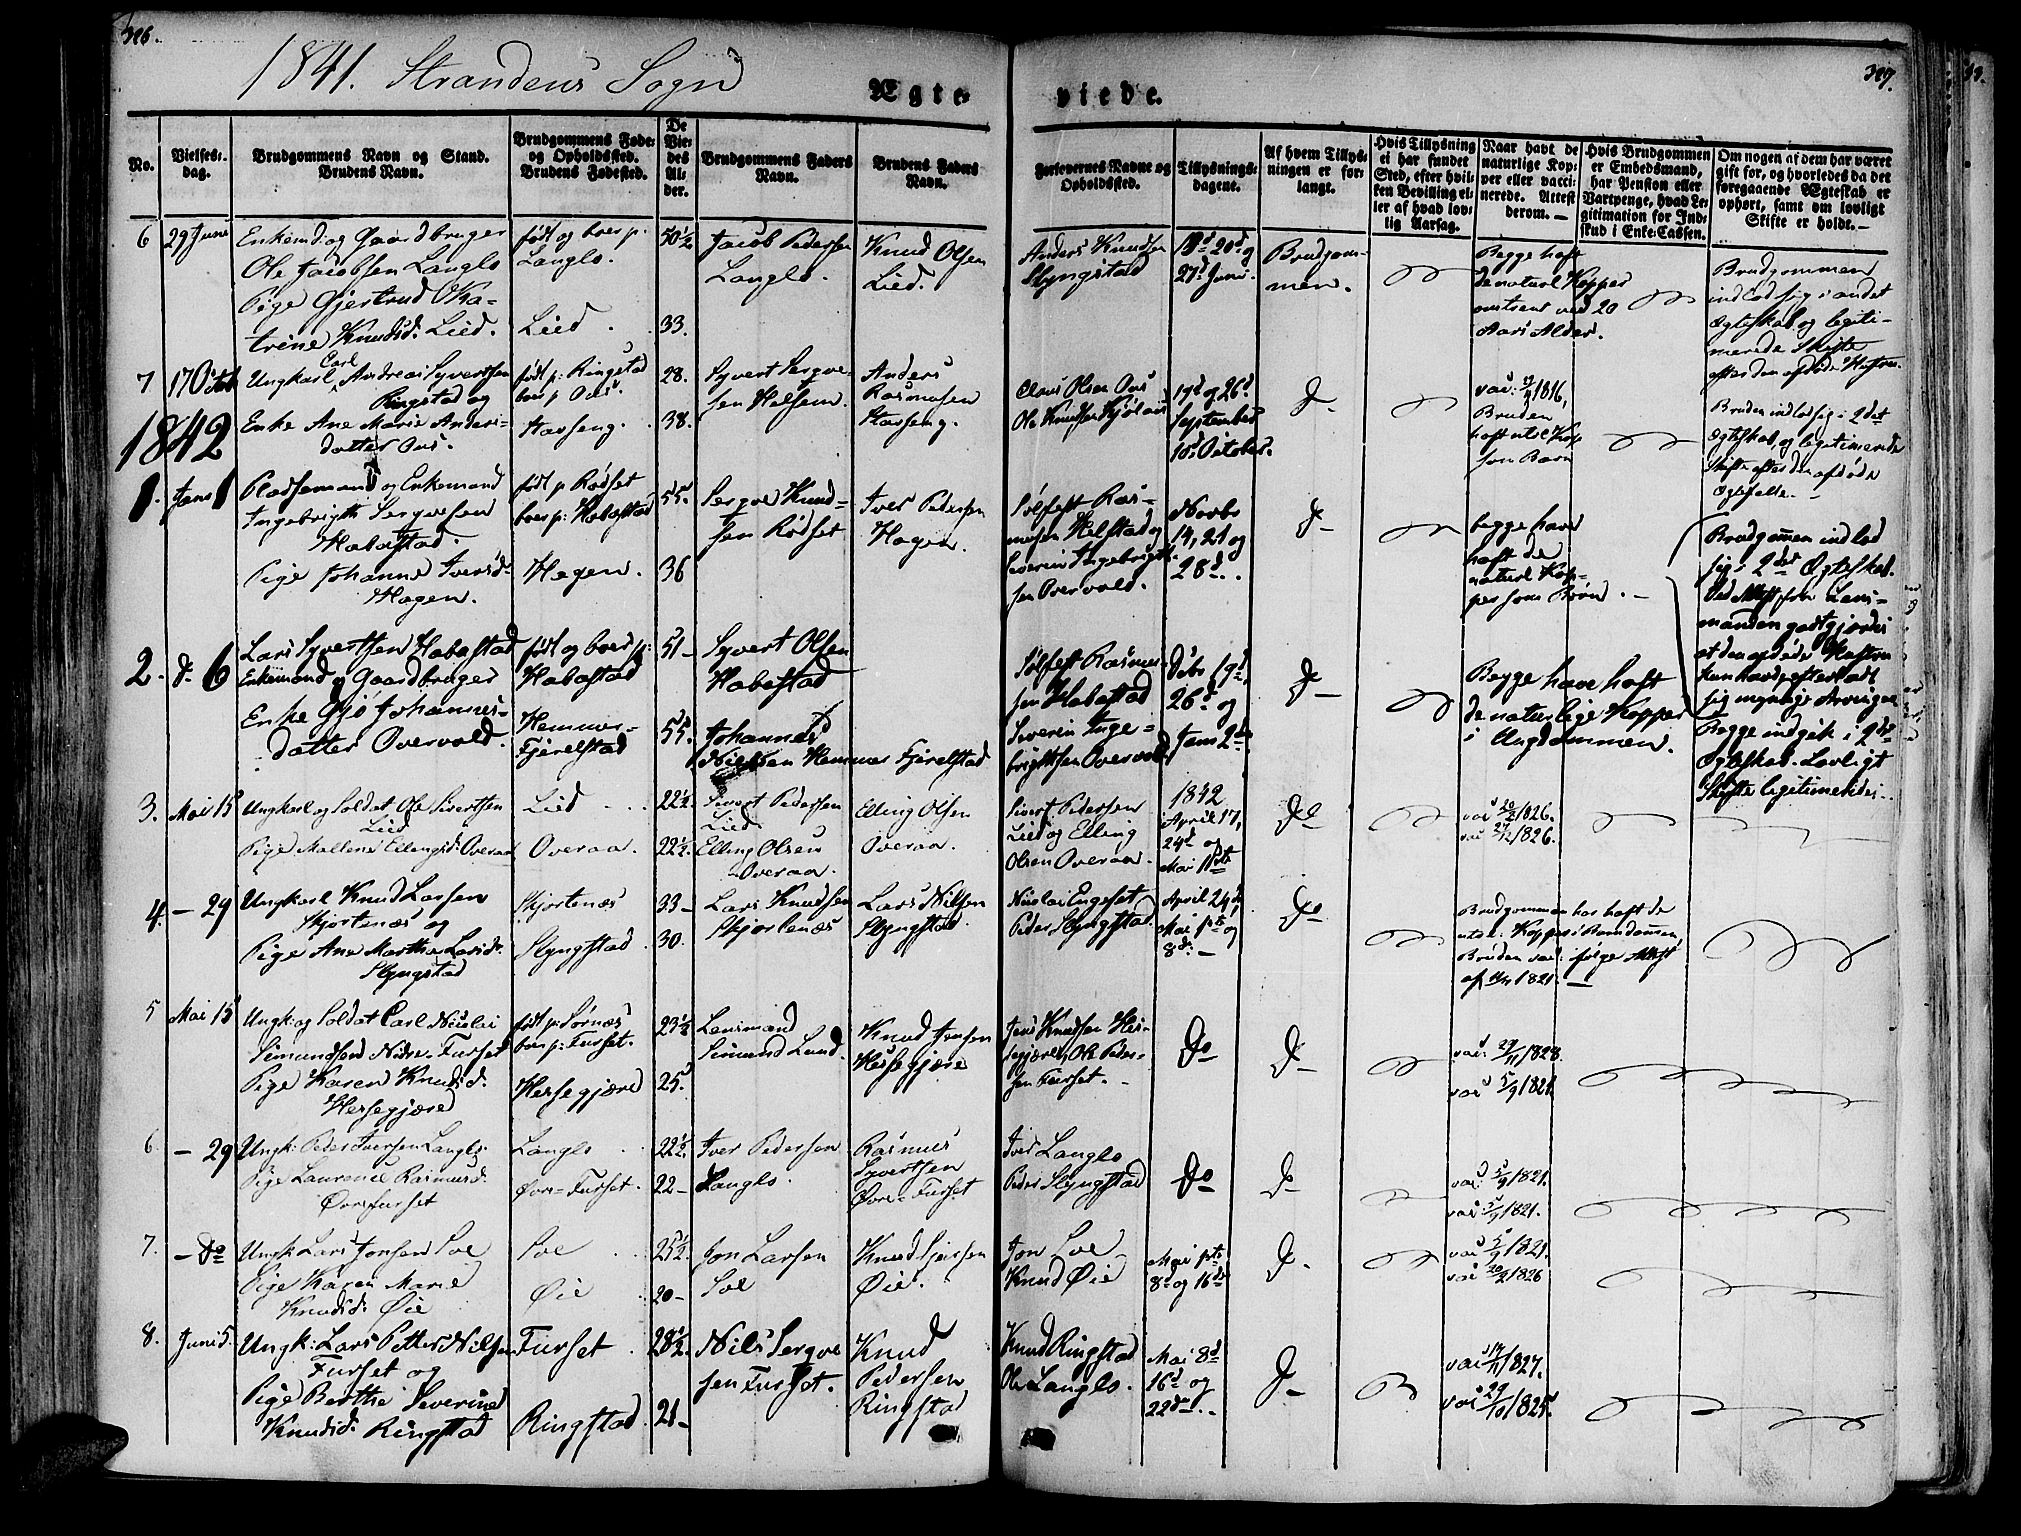 326.
327.
1841. Strandens Sogn
Ægte-
viede.
No.
Vielses-
dag.
Brudgommens Navn og Stand.
Brudens Navn.
Brudgommens Føde-
og Opholdssted.
Brudens Fødested.
De
Vie-
des
Al-
der.
Brudgommens Faders
Navn.
Brudens Faders
Navn.
Forlovernes Navne og
Opholdssted.
Tillysnings-
dagene.
Af hvem Tillys-
ningen er for-
langt.
Hvis Tillysning
ei har fundet
Sted, efter hvil-
ken Bevilling el-
ler af hvad lov-
lig Aarsag.
Naar havt de
naturlige Kop-
per eller vacci-
nerede. Attest
derom.—
Hvis Brudgommen
er Embedsmand,
har Pension eller
Vartpenge, hvad Le-
gitimation for Ind-
skud i Enke-Cassen.
Om nogen af dem har været
gift før, og hvorledes da det
foregaaende Ægteskab er
ophørt, samt om lovligt
Skifte er holdt.—
6 29 Juni
Enkemd. og Gaardbruger
Ole Jacobsen Langlo
Pige Gjertrud Ka-
trine Knudsd. Lied.
født og boer p.
Langlo.
Lied
50½
33.
Jacob Pedersen
Langlo.
Knud Olsen
Lied.
Anders Knudsen
Slyngstad
13d 20d og
27d Juni.
Brudgom-
men.
Begge haft
de naturl. Kopper
ved 20
Aars Alder.
Brudgommen
indlod sig i andet
Ægteskab og legiti-
merede Skifte
efter den afdøde Hustru.
7 17 Octob
Ungkarl Carl Andreas Syvertsen
Ringstad og
Enke Ane Marie Anders-
datter Aus.
født p: Ringstad
boer p Aus.
Stavseng.
28.
38.
Syvert Sergve-
sen
Anders
Rasmusen
Stavseng.
Claus Olsen Aus
Ole Knudsen
19d og 26d
September
10d October.
D–
vac. 1816,
Bruden
haft ntrl Kop
som Barn
Bruden indlod sig i 2det
Ægteskab, og legitimerede
Skifte efter den afdøde
Ægtefelle.–
1842
1. Janr 1
Pladsemand og Enkemand
Ingebrigth Sergvesen
Habostad.
Pige Johanne Iversd.
Hagen.
født p Rødset
boer p: Habostad
Hagen.
55.
36
Sergve Knud-
sen Rødset
Iver Pedersen
Hagen.
Sølfest Ras-
musen Helstad og
Severin Ingebrigt-
sen Overvold.
Novbr
14, 21 og
28d.
D–
begge have
haft de
naturl Kop-
per som Børn.
Brudgommen indlod
sig i 2det Ægteskab.
Ved Attest fra Lens-
manden godtgjordes
at den afdøde Hustru
kun havde efterladt
sig myndige Arvinger
2. D– 6
Lars Syvertsen Habostad
Enkemand og Gaardbruger
Enke Gjø Johannes-
datter Overvold.
født og boer p:
Habostad
Hemmer-
Fjørelstad
51–
55.
Syvert Olsen
Habostad
Johannes
Nielsen Hemmer Fjørelstad
Sølfest Rasmu-
sen Habostad
Severin Inge-
brigtsen Overvold
Debr 19d
26d og
Janr 2d
D–
Begge have haft
de naturlige Kopper
i Ungdommen.
Begge indgik i 2det
Ægteskab. Lovligt
Skifte legitimerdes.
3. Mai 15
Ungkarl og Soldat Ole Sivertsen
Lied
Pige Mallene Ellingsd. Overaa
Lied
Overaa.
22½
22½
Sivert Pedersen
Lied.
Elling Olsen
Overaa.
Elling Olsen
Overaa.
Sivert Pedersen
Lied og Elling
Olsen Overaa.
1842
April 17,
24d og
Mai 1ste
Do
vac 20/2 1826.
vac 27/12 1826.
4. – 29
Ungkarl Knud Larsen
Skjortenæs og
Pige Ane Marthe Larsd.
Slyngstad
Skjortenæs
Slyngstad
33–
30.
Lars Knudsen
Skjortenæs
Lars Nilsen
Slyngstad.
Nicolai Engeset
Peder Slyngstad.
April 24d,
Mai 1ste og
8d.–
Do
Brudgommen har haft de
ntrl. Kopper i Barndommen
Bruden vac. ifølge Attest
af 1821.
5 Mai 15
Ungk. og Soldat Carl Nicolai
Simundsen Nedre-Furset
Pige Karen Knudsd.
Hersegjære
født p: Sørnæs
boer p: Furset.
Hersegjære
23½
25.
Lensmand
Simund Lund.
Knud Jensen
Hersegjære
Jens Knudsen Her-
segjære, Ole Peder-
sen Furset.–
Do
D–
vac. 29/11 1828.
vac 5/9 1821.
6. – 29
Ungk. Peder Iversen Langlo
Pige Laurence Rasmusd.
Øvrefurset
Langlo
Øvre-Furset.
22½
22–
Iver Pedersen
Langlo.
Rasmus
Syvertsen
Øvre-Furset
Iver Langlo
Peder Slyngstad
Do
D–
vac. 5/9 1821.
vac. 5/9 1821.
7. – Do
Ungk. Lars Jonsen Loe
Pige Karen Marie
Knudsd. Øie
Loe
Øie
25½
20–
Jon Larsen
Loe
Knud
Øie.
Jon Loe
Knud Øie
Mai 1ste
8d og 16de
D–
vac 5/9 1821.
vac 20/2 1826
8. Juni 5.
Ungk: Lars Petter Nilsen
Furset og
Pige Berthe Severine
Knudsd. Ringstad
Furset
Ringstad
28½
21–
Nils Sergve-
sen Furset.
Knud
Pedersen
Ringstad
Knud Ringstad
Ole Langlo.
Mai 8d
16d og
22de
D–
vac 14/11 1827.
vac 29/10 1825.